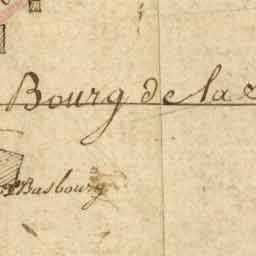 Bourg de la
Basbourg